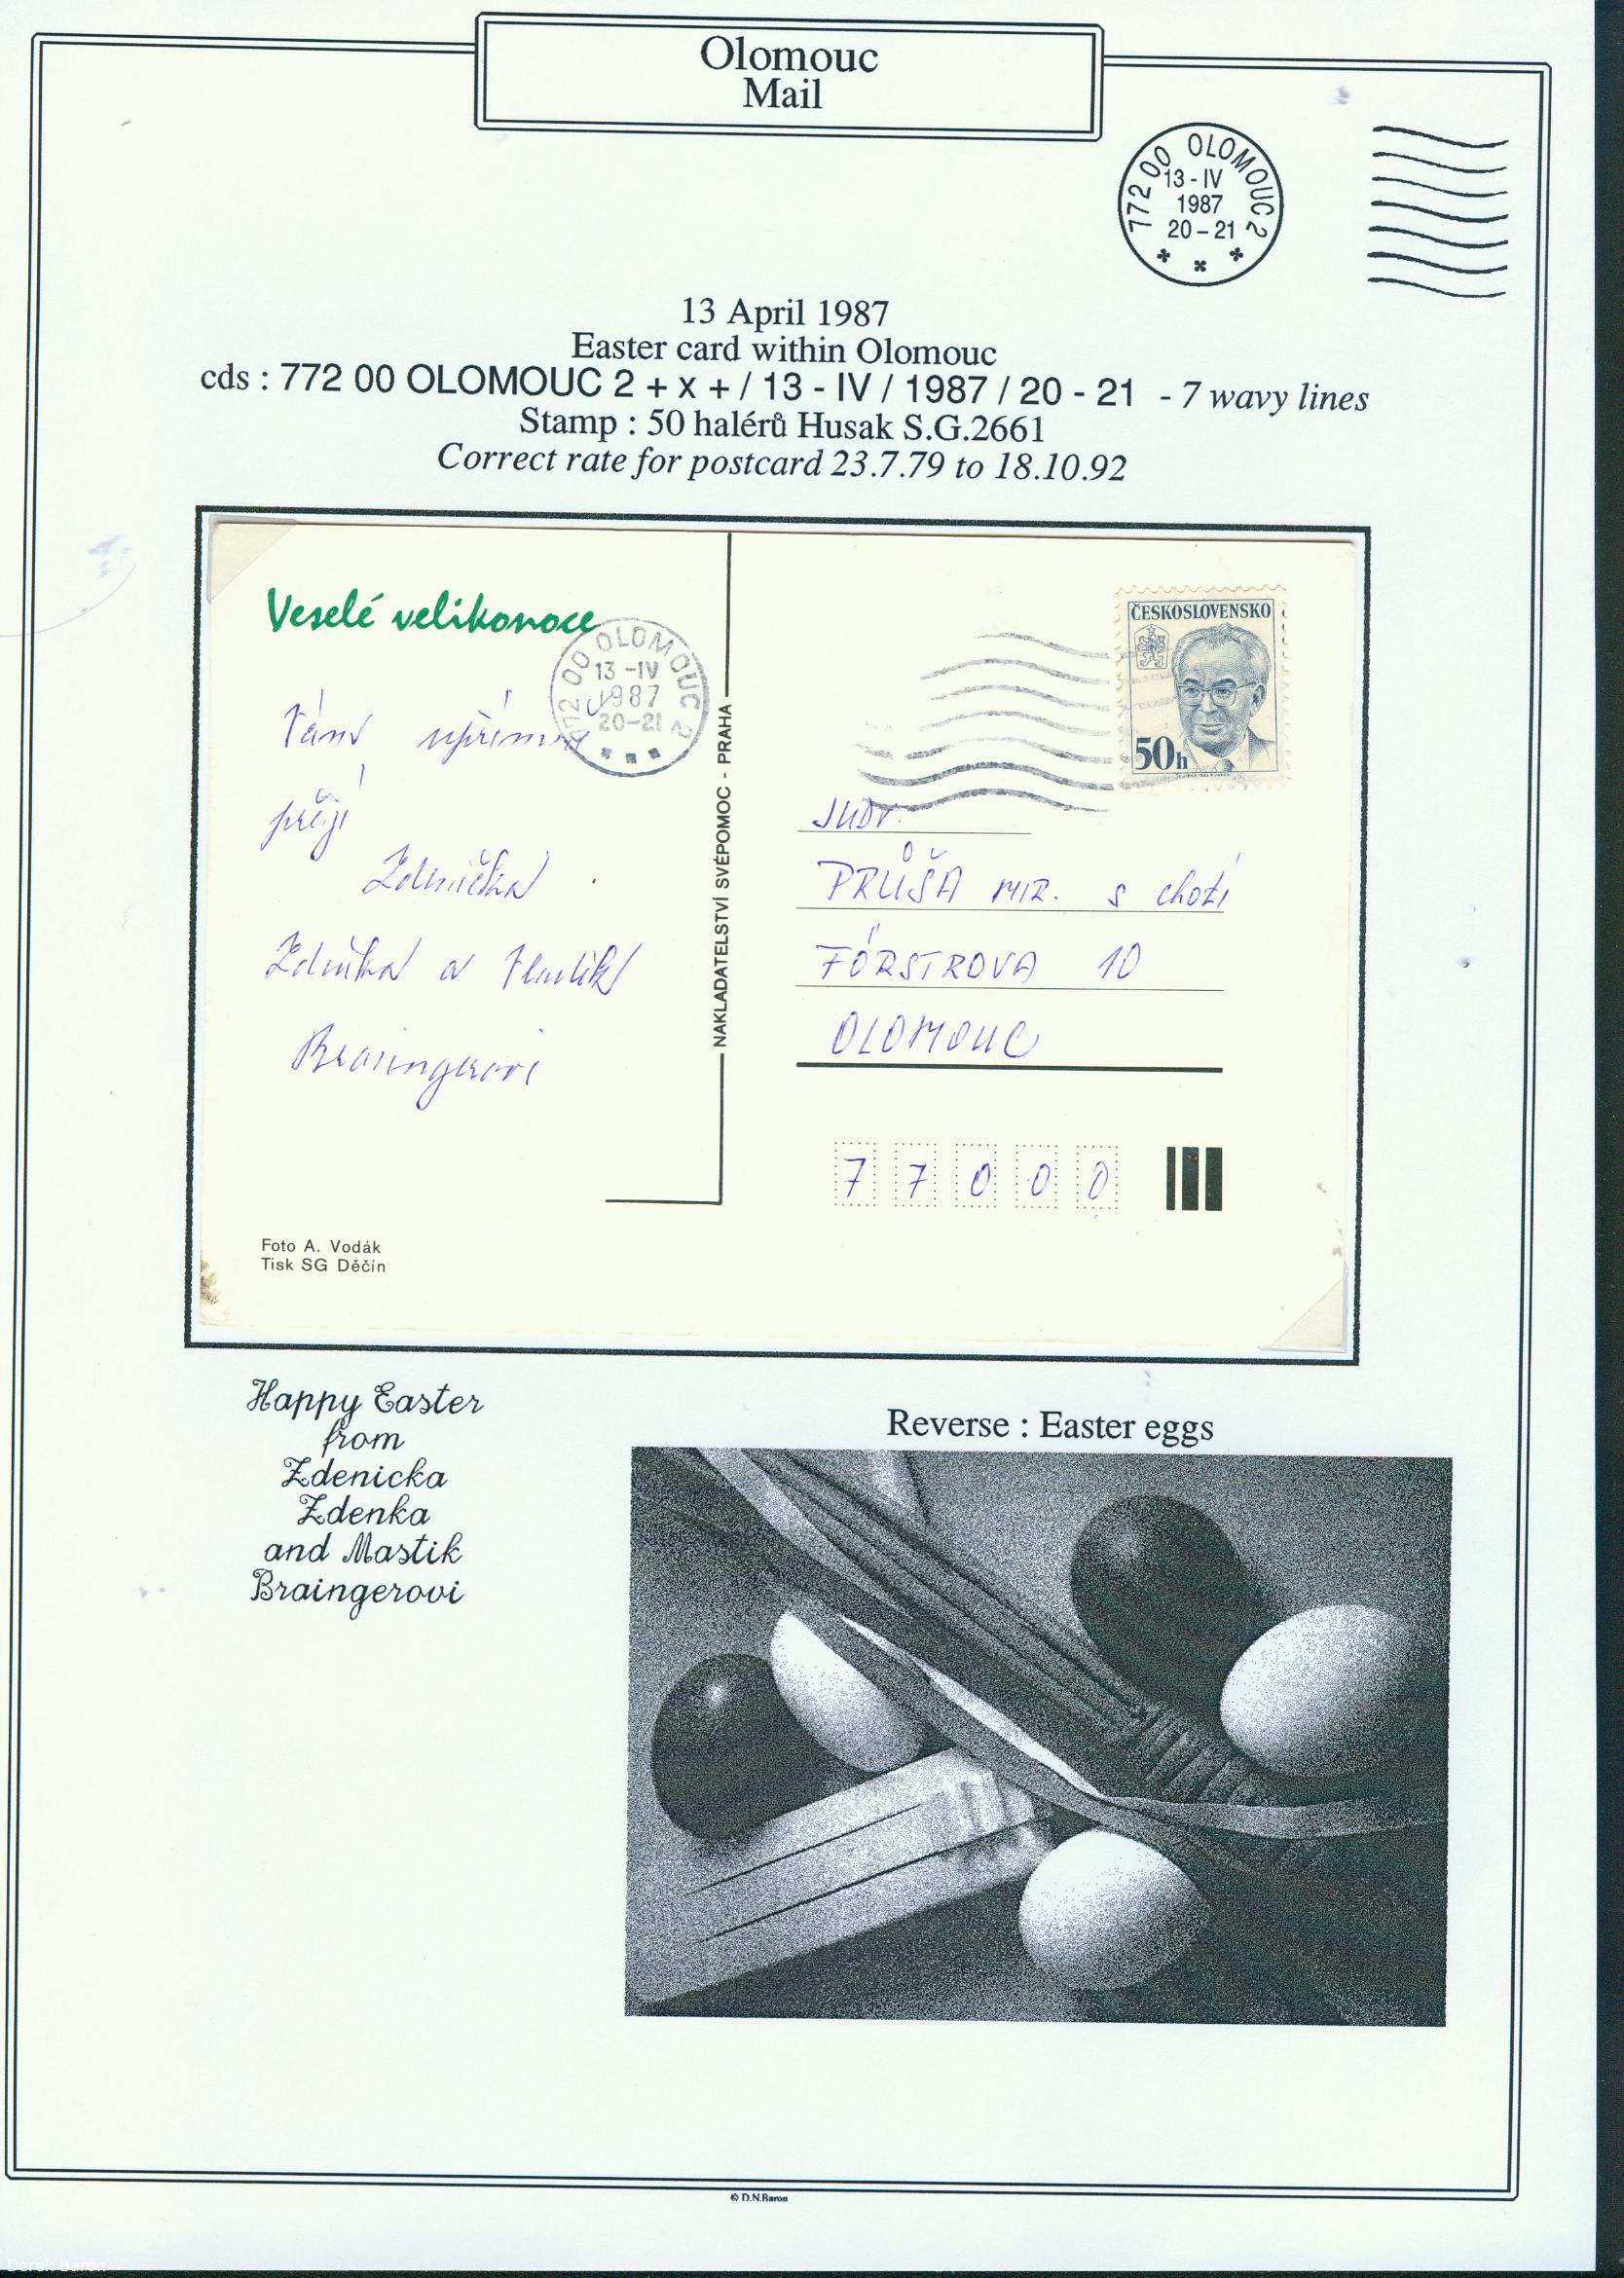 Olomouc
Mail
772 00 OLOMOUC 2
13 - IV
1987
20 - 21
13 April 1987
Easter card within Olomouc
cds : 772 00 OLOMOUC 2 + x + / 13 - IV / 1987 / 20 - 21 - 7 wavy lines
Stamp : 50 halérů Husak S.G.2661
Correct rate for postcard 23.7.79 to 18.10.92
Veselé velikonoce
772 00 OLOMOUC 2
13 -IV
1987
20-21
Vám upřímně
přejí
Zdenička
Zdeňka a
NAKLADATELSTVÍ SVÉPOMOC - PRAHA
ČESKOSLOVENSKO
50h
JUDr.
PRŮŠA MIR. s chotí
FÖRSTROVA 10
OLOMOUC
7 7 0 0 0
Foto A. Vodák
Tisk SG Děčín
Happy Easter
from
Zdenicka
Zdenka
and Mastik
Braingerovi
Reverse : Easter eggs
© D.N.Baron
Derek Baron